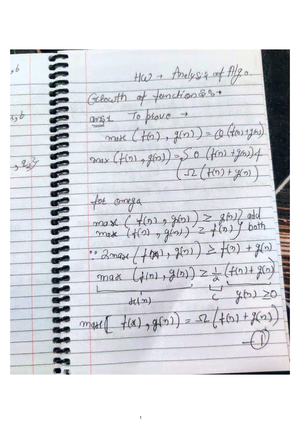 HW → Analysis of Algo.
Growth of functions →
ans1 To prove →
max (f(n), g(n)) = Θ (f(n)+g(n))
max (f(n), g(n)) = { O (f(n)+g(n)) }
{ Ω (f(n)+g(n))
for omega
max ( f(n), g(n)) ≥ g(n) } add
max ( f(n), g(n)) ≥ f(n) } both
2max (f(n), g(n)) ≥ f(n) + g(n)
max (f(n), g(n)) ≥ 1/2 (f(n)+g(n))
c g(n) ≥ 0
max [ f(n), g(n)) = Ω (f(n)+g(n))
— ①
1